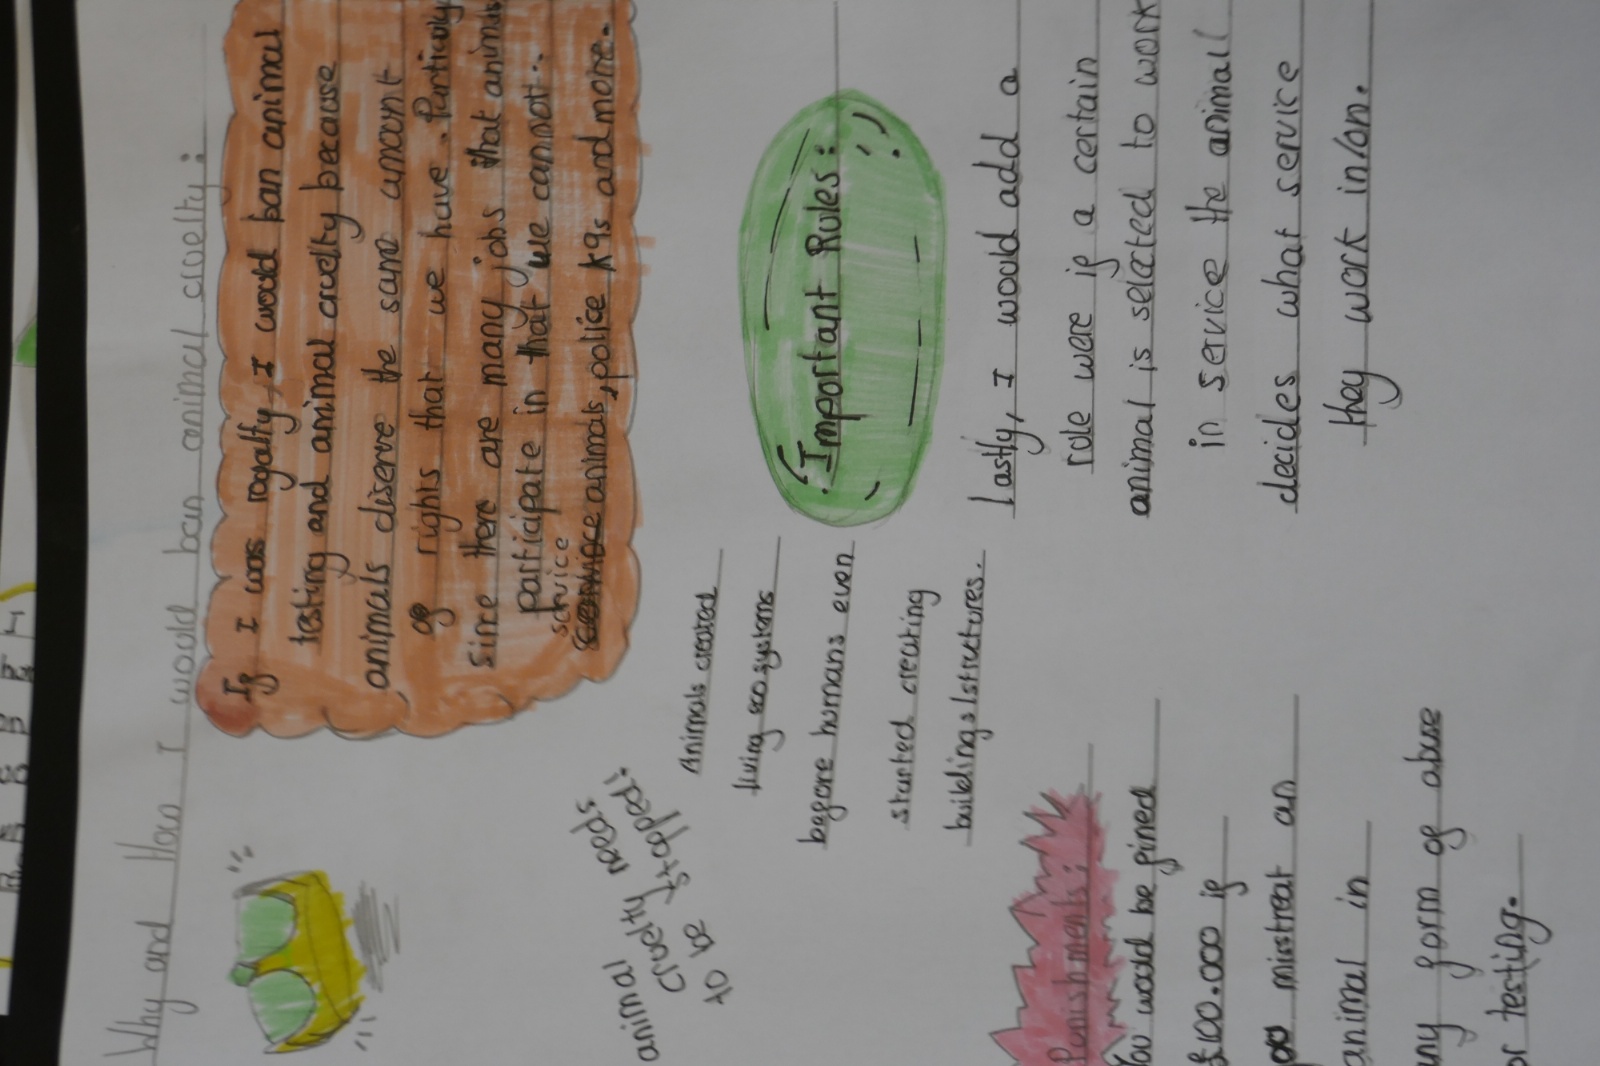 Why and How I would ban animal cruelty:
If I was royalty, I would ban animal
testing and animal cruelty because
animals diserve the same amount
of rights that we have. Particuly
since there are many jobs that animals
participate in that we cannot:
service
animals, police k9s and more.
animal
cruelty needs
to be stopped!
Animals created
living ecosystems
before humans even
started creating
buildings/structures.
Important Rules:
Lastly, I would add a
rule were if a certain
animal is selected to work
in service the animal
decides what service
they work in/on.
Punishments:
You would be fined
£100.000 if
misstreat an
animal in
any form of abuse
or testing.